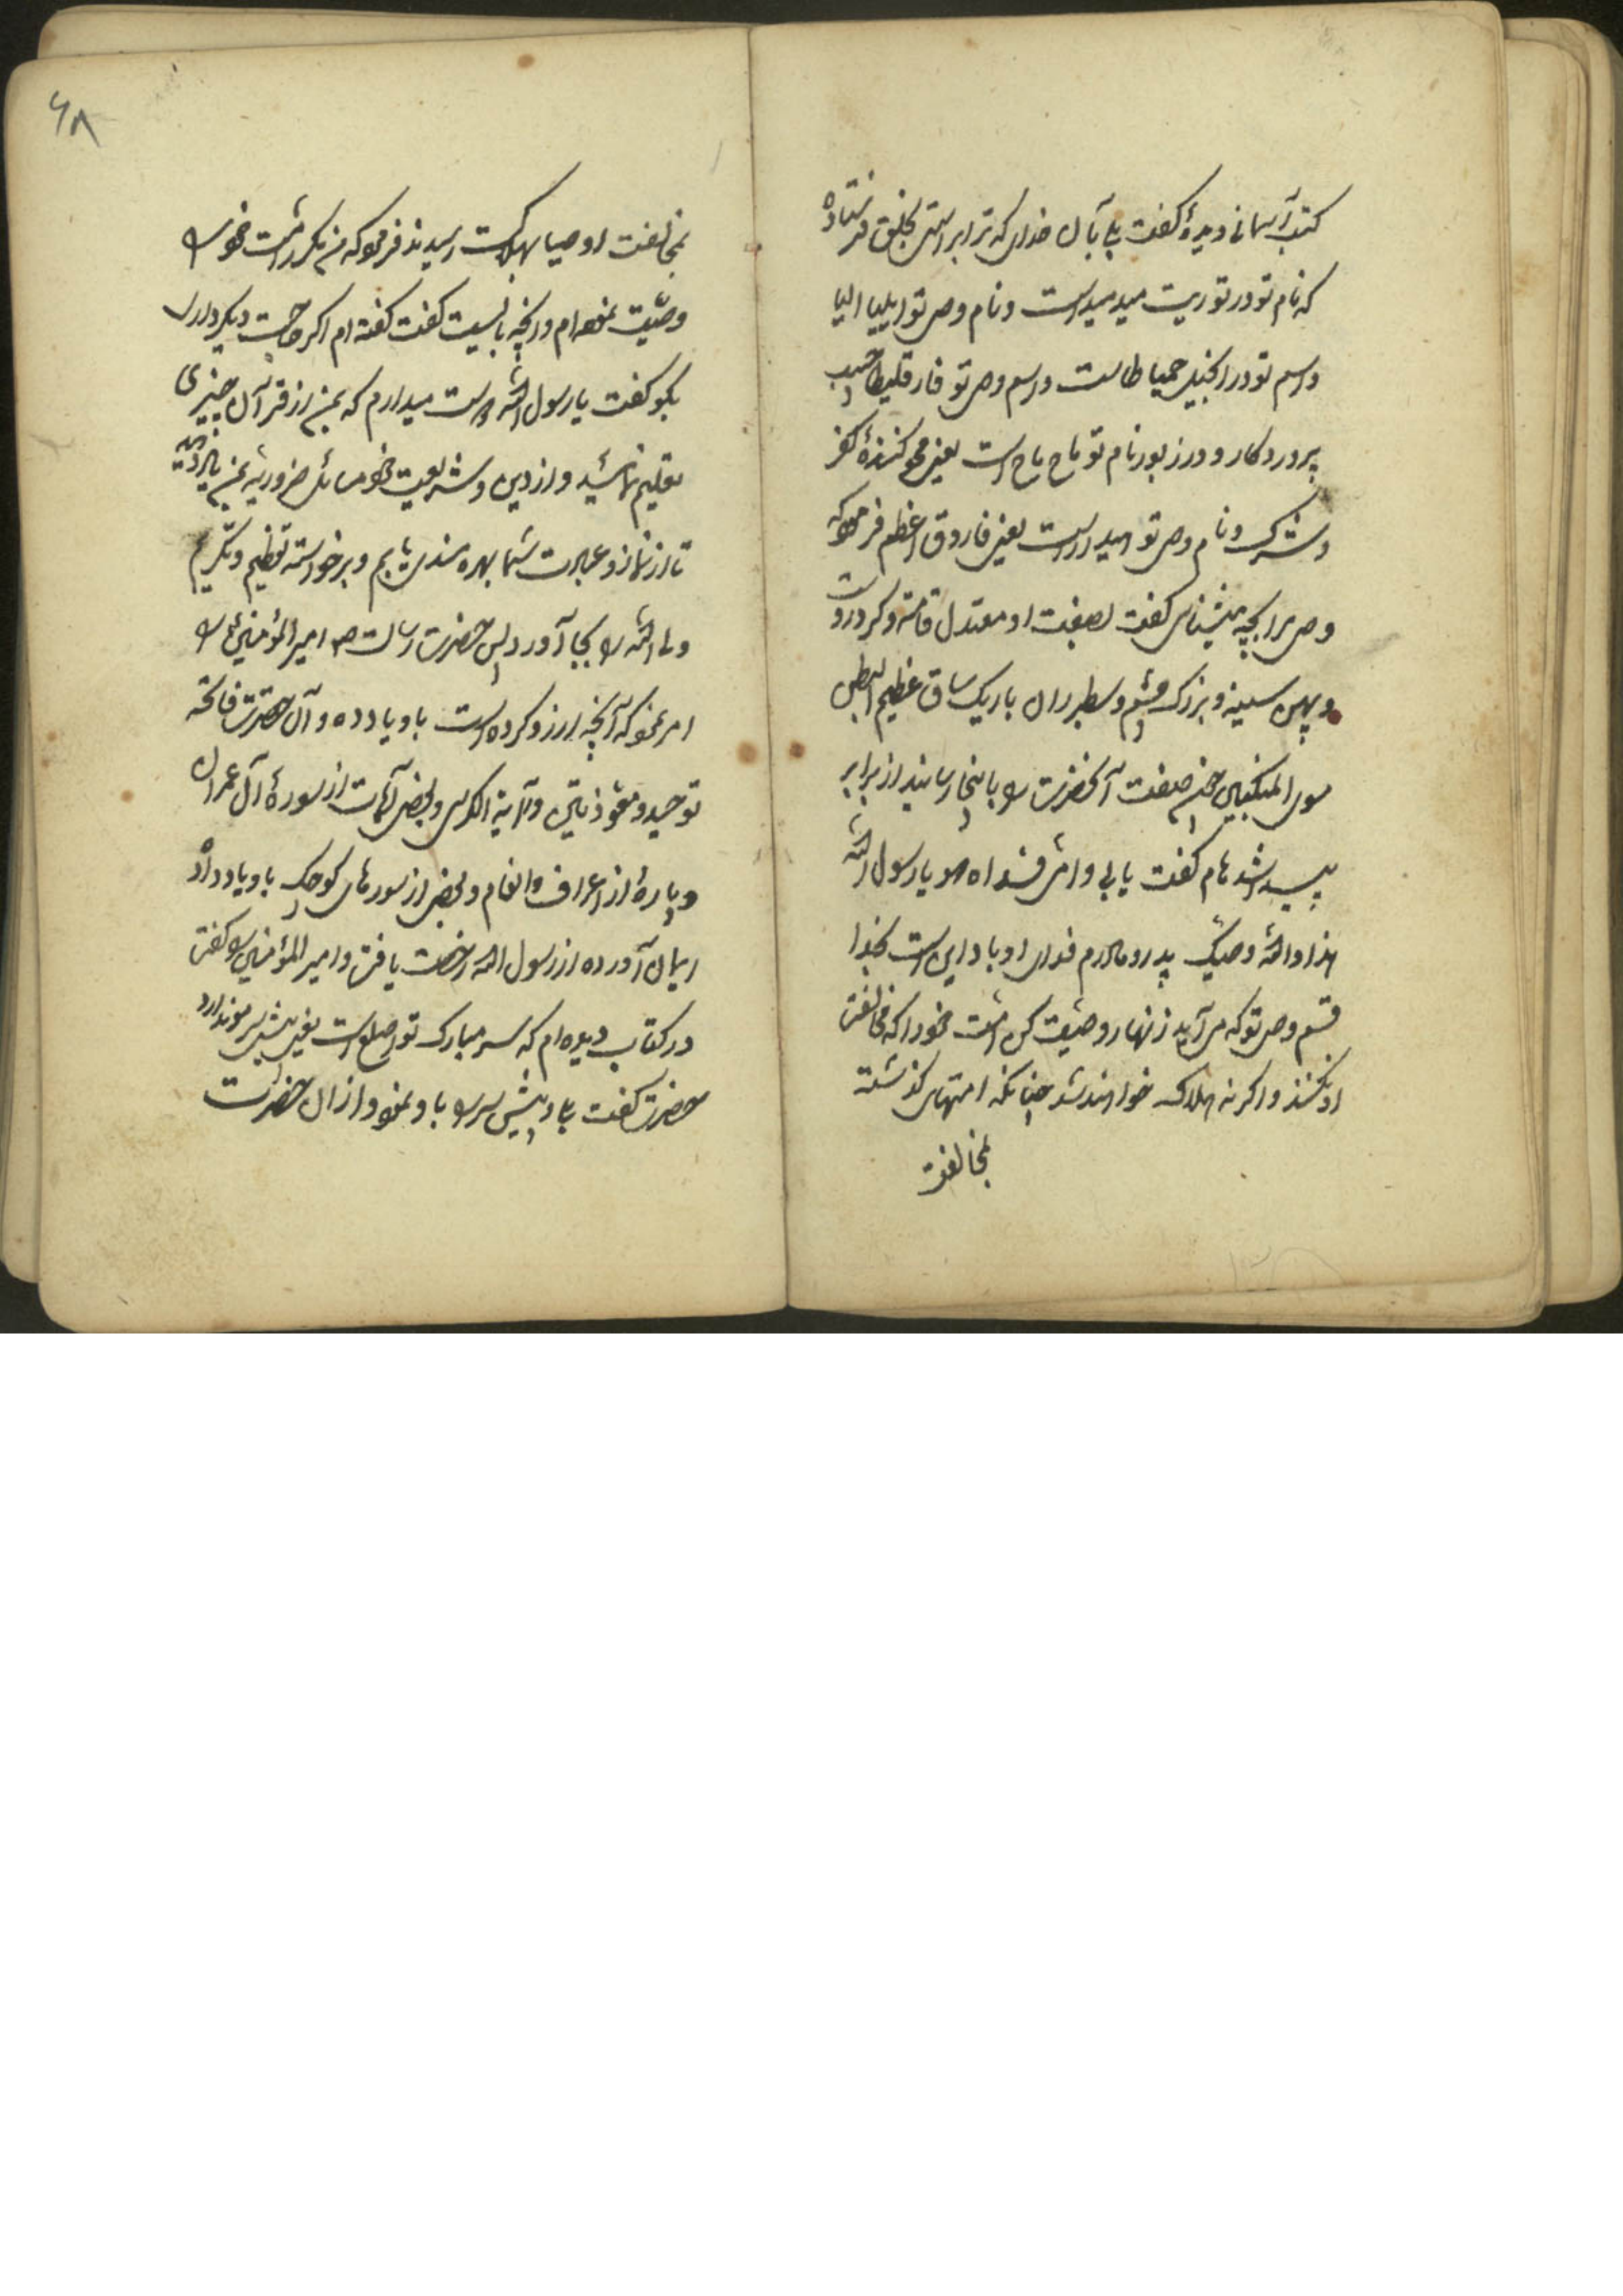 کتب آسمانی دیدۀ گفت بلی بآن خدای که ترا براستی بخلق فرستاده
که نام تو در توریت میدمید است و نام وصی تو ایلیا الیا
و اسم تو در انجیل حمیاطا است و اسم وصی تو فارقلیطا حبیب
پروردگار و در زبور نام تو ماح ماح است یعنی محو کنندۀ کفر
و شرک و نام وصی تو است یعنی فاروق اعظم فرمود که
وصی مرا بچه میشناسی گفت بصفت او معتدل قامة و گرد روست
و پهن سینه و بزرگ چشم و سطبر ران باریک ساق عظیم البطن
سوی المنکبین چون صفت آنحضرت را باینجا رسانید از برابر
پیدا شد هام گفت بابی و امی فداه هو یا رسول الله
هذا والله وصیک پدر و مادرم فدای او باد این است بخدا
قسم وصی تو که می آید زنهار وصیت کن امت خود را که مخالفت
او نکنند و اگر نه هلاک خواهند شد چنانکه امتهای گذشته
بمخالفت
۶۸
بمخالفت اوصیا بهلاکت رسیدند فرمود که من مکرر امت خود را
وصیت نموده ام و آنچه بایست گفت گفته ام اگر حاجت دیگر داری
بگو گفت یا رسول الله دوست میدارم که بمن از قرآن چیزی
تعلیم نمائید و از دین و شریعت خود مسائل ضروریه بمن یاد دهید
تا از نماز و عبادت شما بهره مند شویم و برخواسته تعظیم و تکریم
ولی الله را بجا آورد پس حضرت رسالت ص امیر المؤمنین را
امر نمود که آنچه آرزو کرده است باو یاد ده و آن حضرت فاتحه
توحید و معوذتین و آیة الکرسی و بعضی آیات از سورۀ آل عمران
و پارۀ از اعراف و انعام و بعضی از سورهای کوچک باو یاد داد
ایمان آورده از رسول الله رخصت یافت و امیر المؤمنین را گفت
در کتاب دیده ام که سر مبارک تو اصلع است یعنی پیش سر مو ندارد
حضرت گفت بلی و پیش سر را باو نمود و از آن حضرت